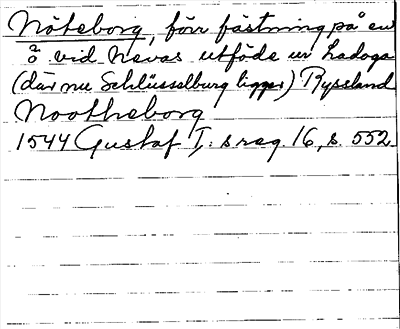 Nöteborg, förr fästning på en
ö vid Nevas utflöde ur Ladoga
(där nu Schlüsselburg ligger) Ryssland
Nootheborg
1544 Gustaf I:s reg. 16, s. 552.